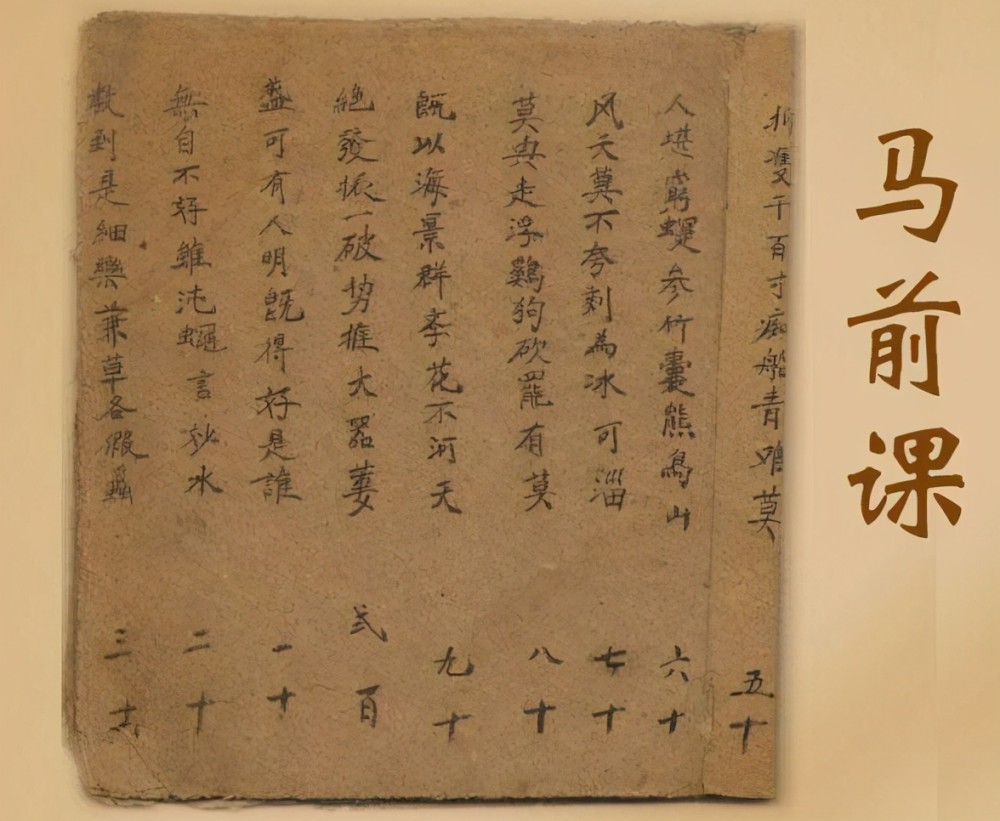 马前课
千百寸痴船青 莫
五十
人堪 參竹囊熊鳥山
六十
风天莫不夸刺為冰可淄
七十
莫典走浮鷄狗砍罷有莫
八十
既以海景群李花不河天
九十
絕發振一破势推大器萋
弍百
盖可有人明既得好是誰
一十
無自不好雖沌 言 水
二十
数到是細樂兼草各假
三十